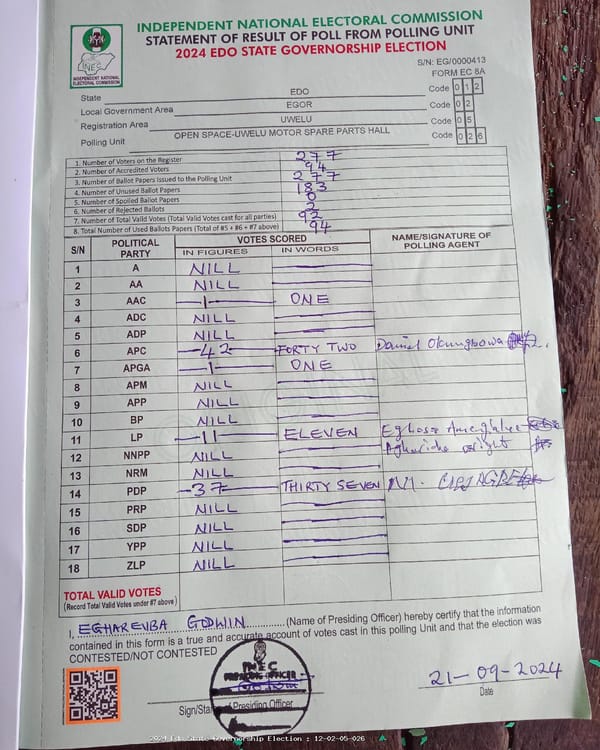 INDEPENDENT NATIONAL ELECTORAL COMMISSION
STATEMENT OF RESULT OF POLL FROM POLLING UNIT
2024 EDO STATE GOVERNORSHIP ELECTION
INEC
INDEPENDENT NATIONAL
ELECTORAL COMMISSION
S/N: EG/0000413
FORM EC 8A
State EDO Code 0 1 2
Local Government Area EGOR Code 0 2
Registration Area UWELU Code 0 5
Polling Unit OPEN SPACE-UWELU MOTOR SPARE PARTS HALL Code 0 2 6
1. Number of Voters on the Register 277
2. Number of Accredited Voters 94
3. Number of Ballot Papers Issued to the Polling Unit 277
4. Number of Unused Ballot Papers 183
5. Number of Spoiled Ballot Papers 0
6. Number of Rejected Ballots 2
7. Number of Total Valid Votes (Total Valid Votes cast for all parties) 92
8. Total Number of Used Ballots Papers (Total of #5 + #6 + #7 above) 94
S/N POLITICAL PARTY VOTES SCORED NAME/SIGNATURE OF POLLING AGENT
IN FIGURES IN WORDS
1 A NILL
2 AA NILL
3 AAC -1- ONE
4 ADC NILL
5 ADP NILL
6 APC -42- FORTY TWO Daniel Okungbowa
7 APGA -1- ONE
8 APM NILL
9 APP NILL
10 BP NILL
11 LP -11- ELEVEN Eghosa
12 NNPP NILL
13 NRM NILL
14 PDP -37- THIRTY SEVEN
15 PRP NILL
16 SDP NILL
17 YPP NILL
18 ZLP NILL
TOTAL VALID VOTES
(Record Total Valid Votes under #7 above)
I, EGHAREVBA GODWIN (Name of Presiding Officer) hereby certify that the information
contained in this form is a true and accurate account of votes cast in this polling Unit and that the election was
CONTESTED/NOT CONTESTED
INEC
PRESIDING OFFICER
21-09-2024
Sign/Stamp of Presiding Officer Date
2024 Edo State Governorship Election : 12-02-05-026